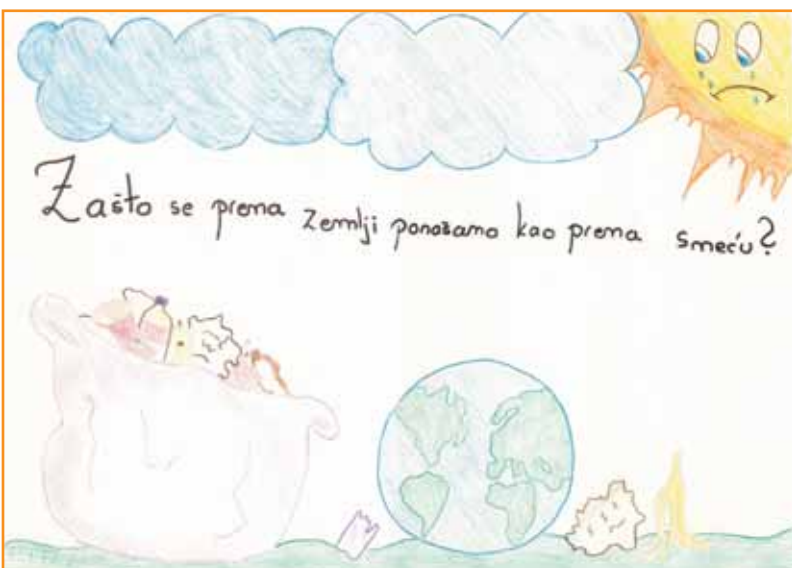 Zašto se prema zemlji ponašamo kao prema smeću?